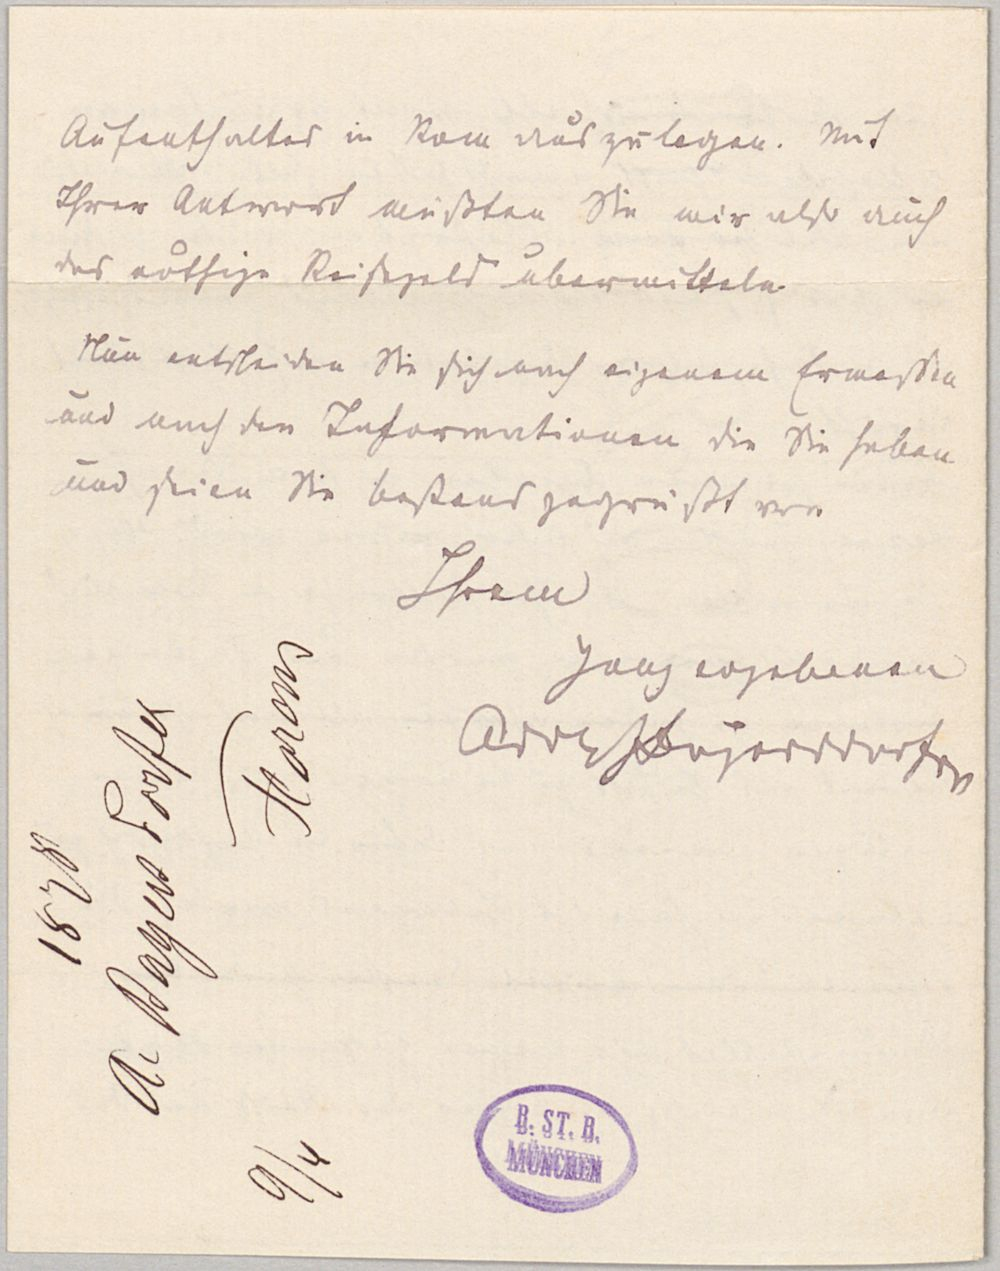 Aufenthaltes in Rom auszulegen. Mit
Ihrer Antwort müßten Sie mir also auch
das nöthige Reisegeld übermitteln.
Nun entscheiden Sie sich nach eigenem Ermessen
und nach den Informationen die Sie haben
und seien Sie bestens gegrüßt von
Ihrem
ganz ergebenen
Adolf Bayersdorfer
1878
A. Bayersdorfer
Florenz
9/4
B. ST. B.
MÜNCHEN